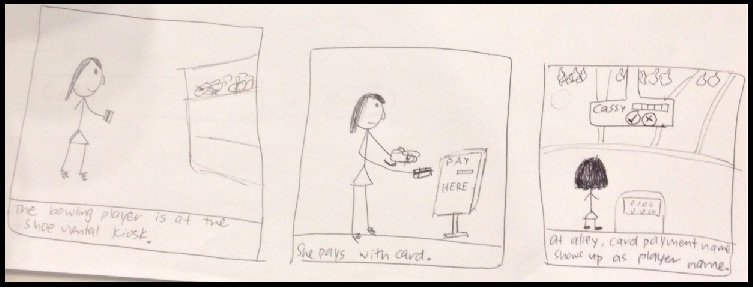 The bowling player is at the
shoe rental kiosk.
PAY
HERE
She pays with card.
CASSY
At alley, card payment name
shows up as player name.